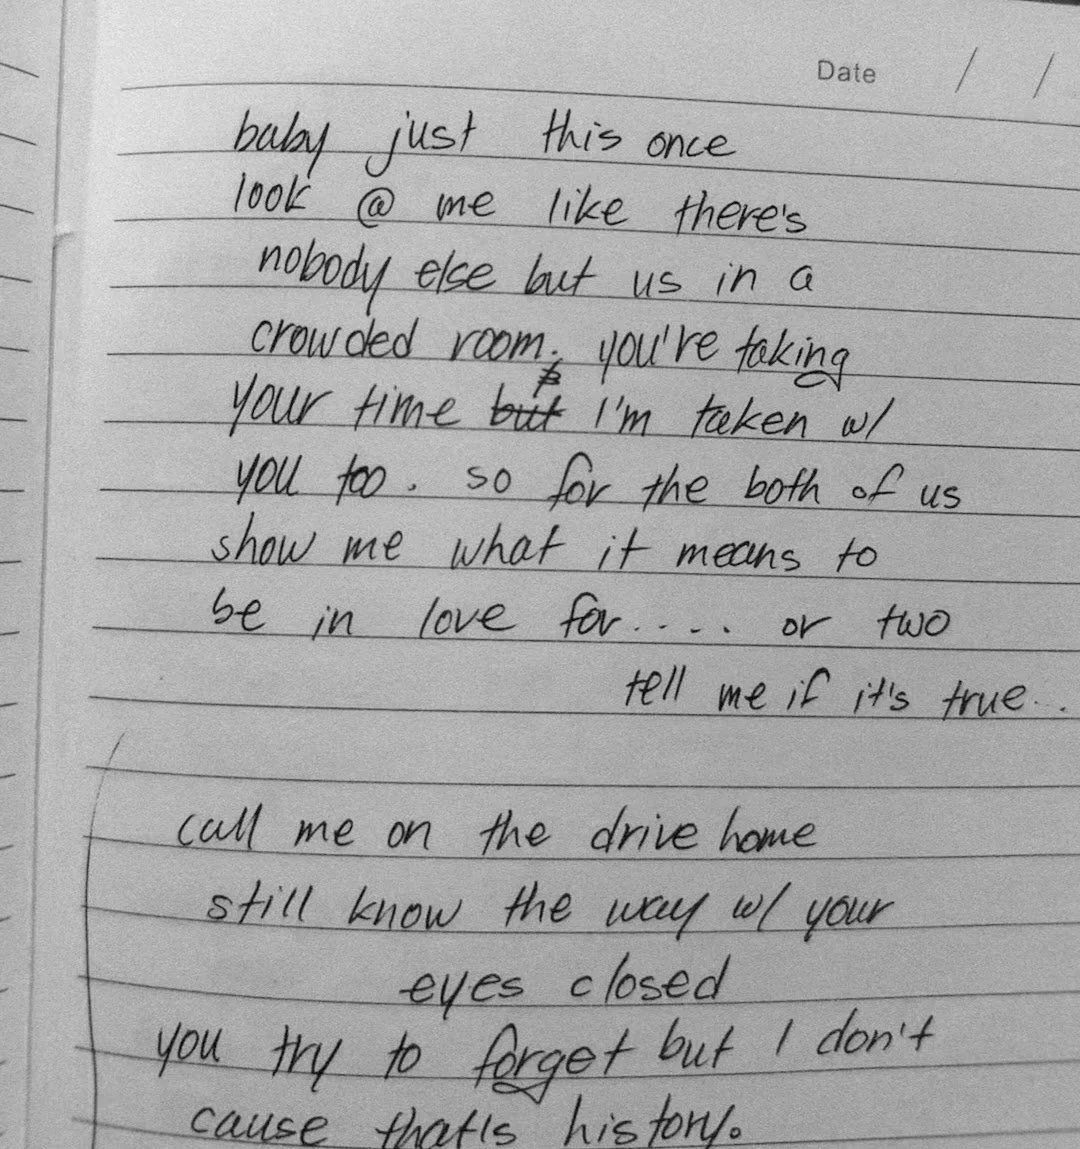 Date / /
baby just this once
look @ me like there's
nobody else but us in a
crowded room. you're taking
your time but I'm taken w/
you too. so for the both of us
show me what it means to
be in love for.... or two
tell me if it's true...
call me on the drive home
still know the way w/ your
eyes closed
you try to forget but I don't
cause that's history.